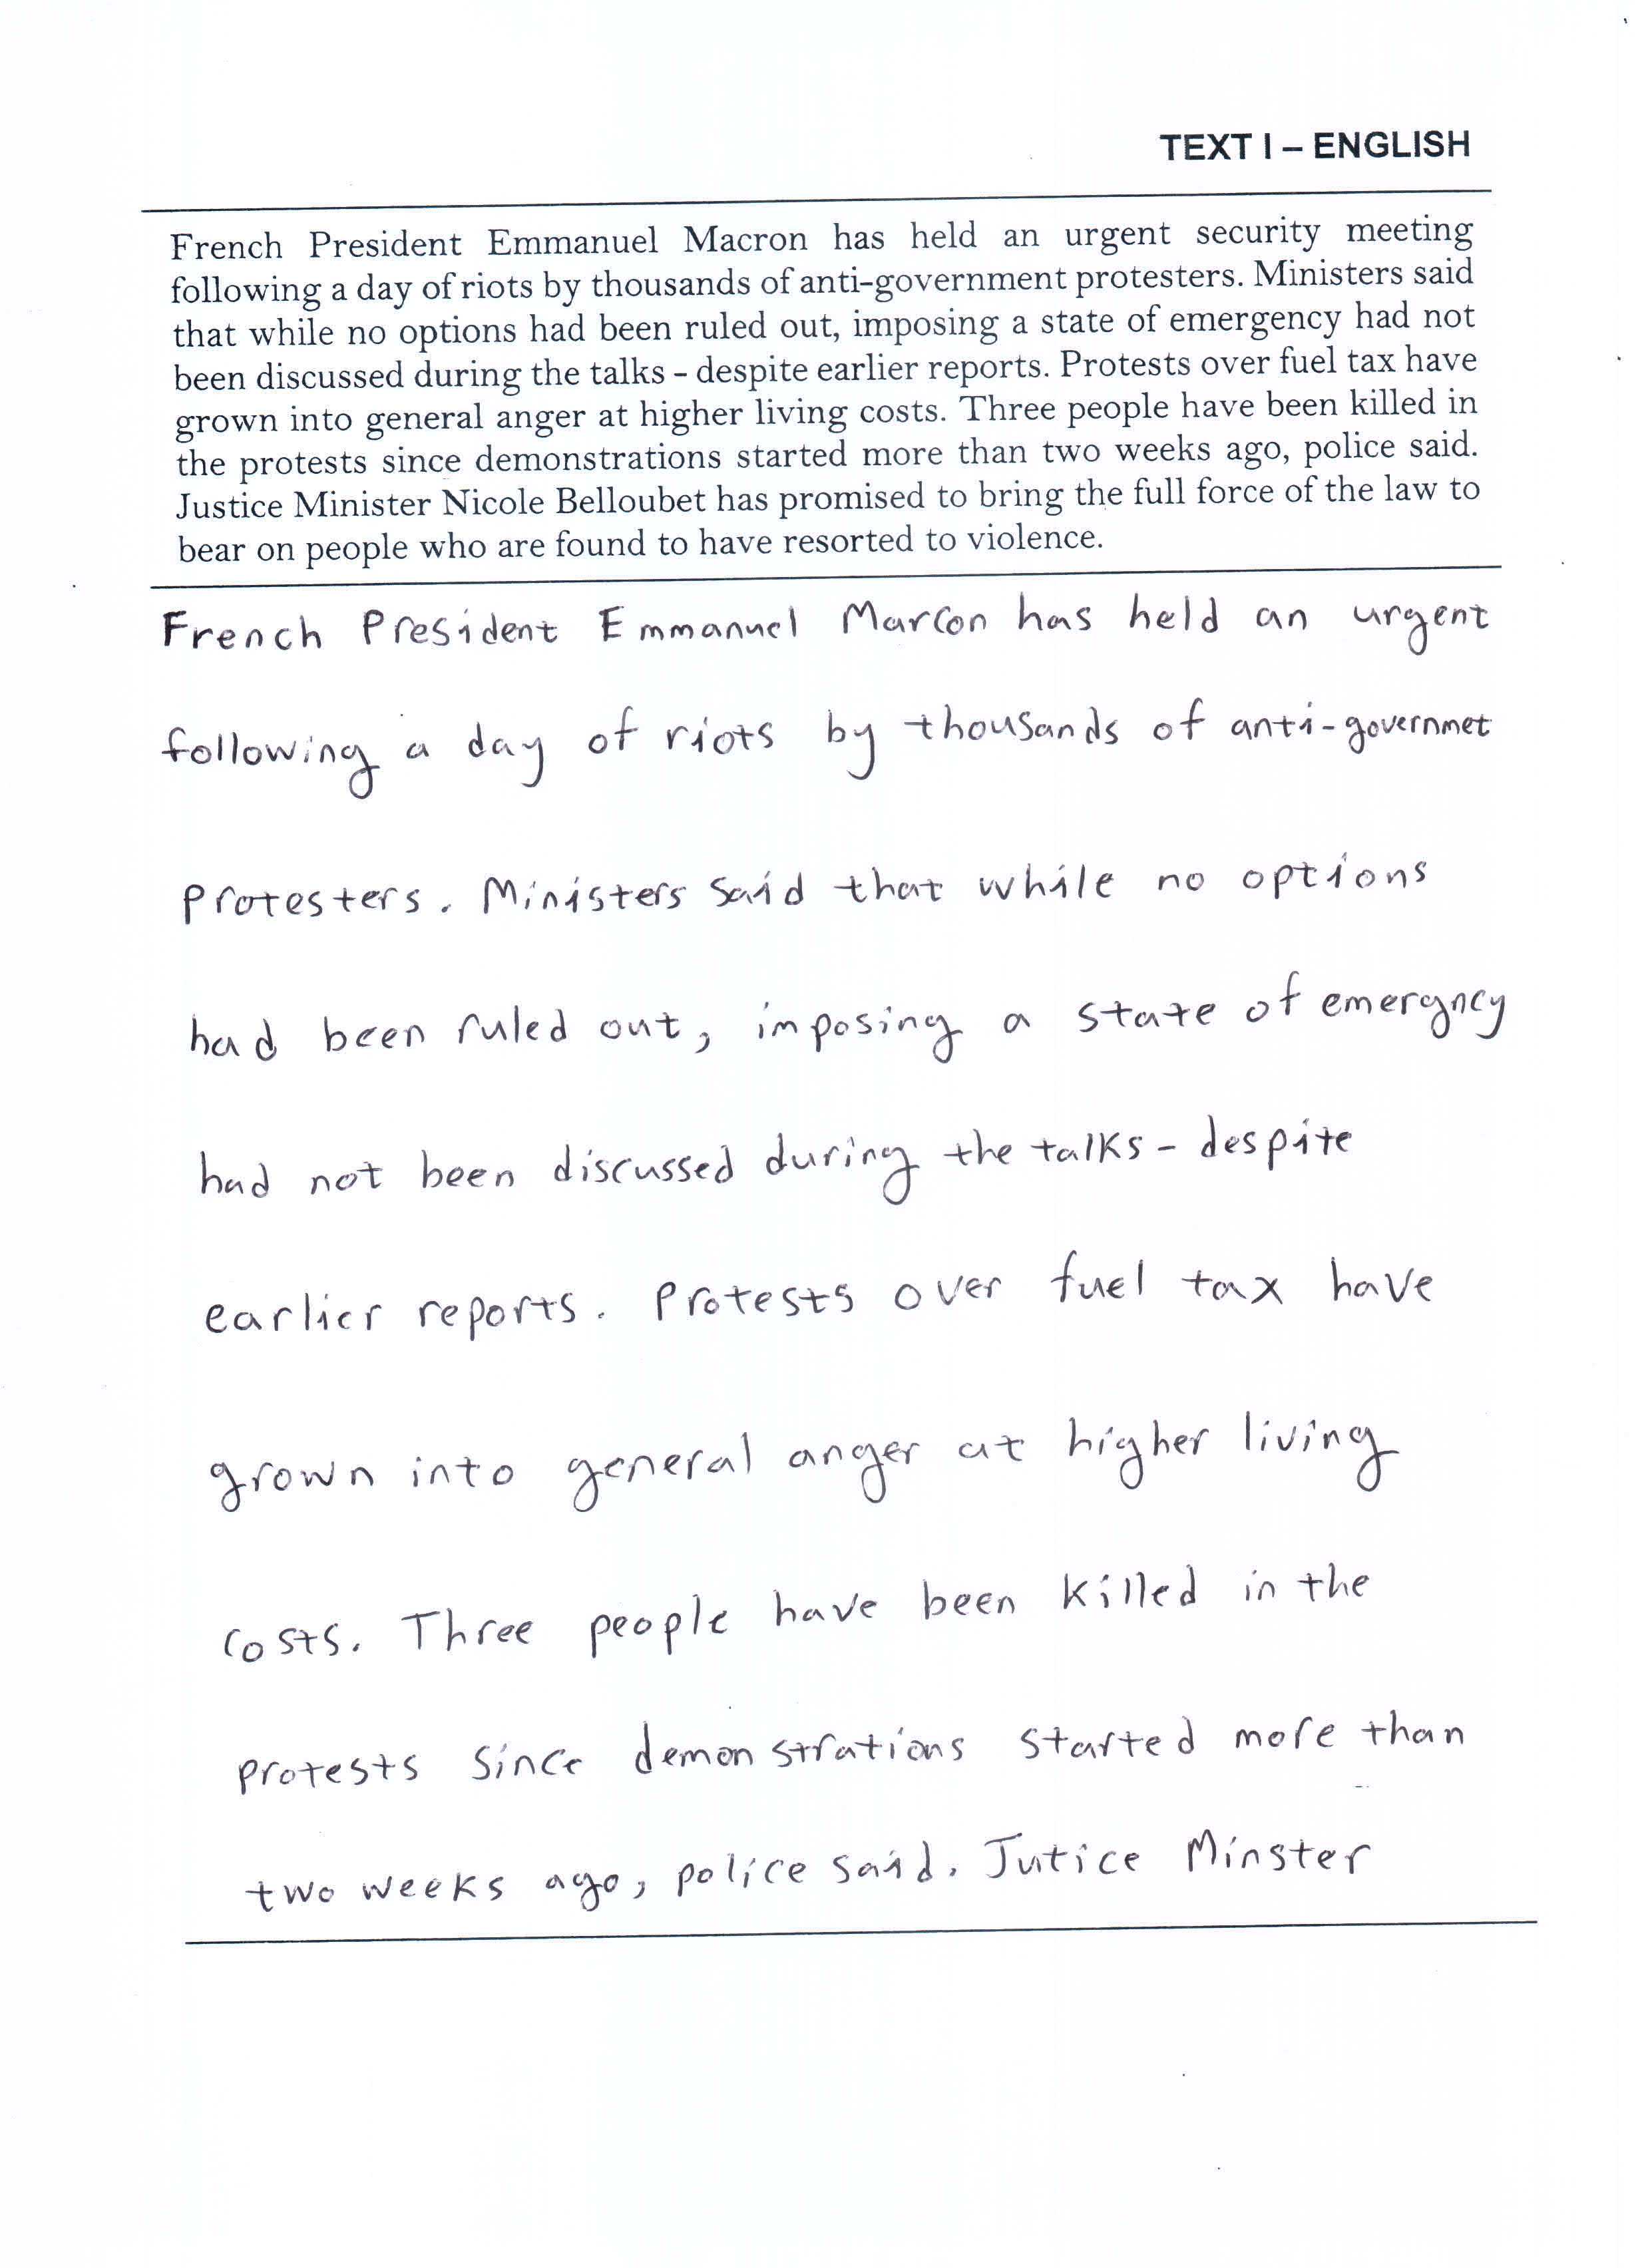 TEXT I – ENGLISH
French President Emmanuel Macron has held an urgent security meeting
following a day of riots by thousands of anti-government protesters. Ministers said
that while no options had been ruled out, imposing a state of emergency had not
been discussed during the talks - despite earlier reports. Protests over fuel tax have
grown into general anger at higher living costs. Three people have been killed in
the protests since demonstrations started more than two weeks ago, police said.
Justice Minister Nicole Belloubet has promised to bring the full force of the law to
bear on people who are found to have resorted to violence.
French President Emmanuel Marcon has held an urgent
following a day of riots by thousands of anti-governmet
protesters. Ministers said that while no options
had been ruled out, imposing a state of emergncy
had not been discussed during the talks - despite
earlier reports. Protests over fuel tax have
grown into general anger at higher living
costs. Three people have been killed in the
protests since demonstrations started more than
two weeks ago, police said. Jutice Minster